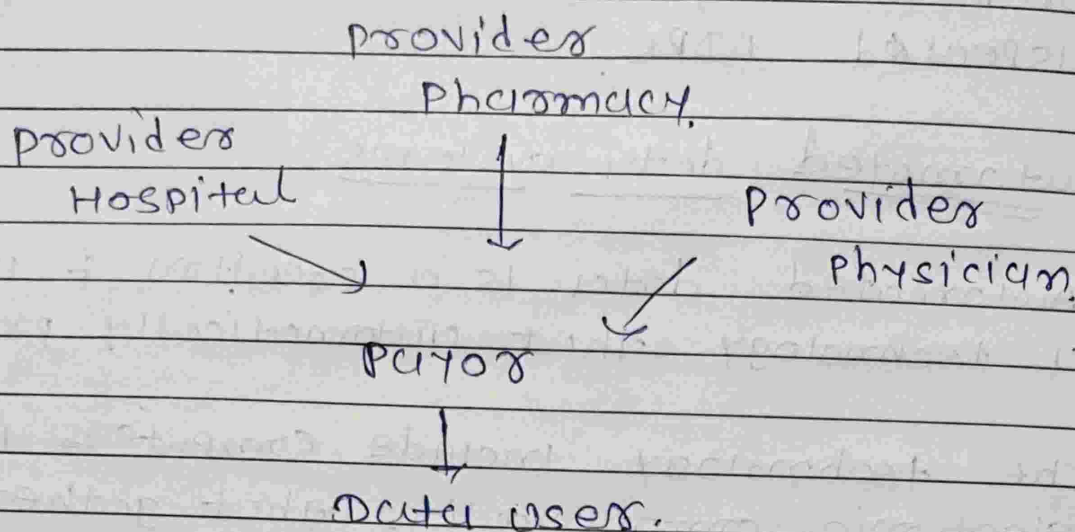 Provider
Pharmacy.
Provider
Hospital
Provider
Physician.
Payor
Data user.